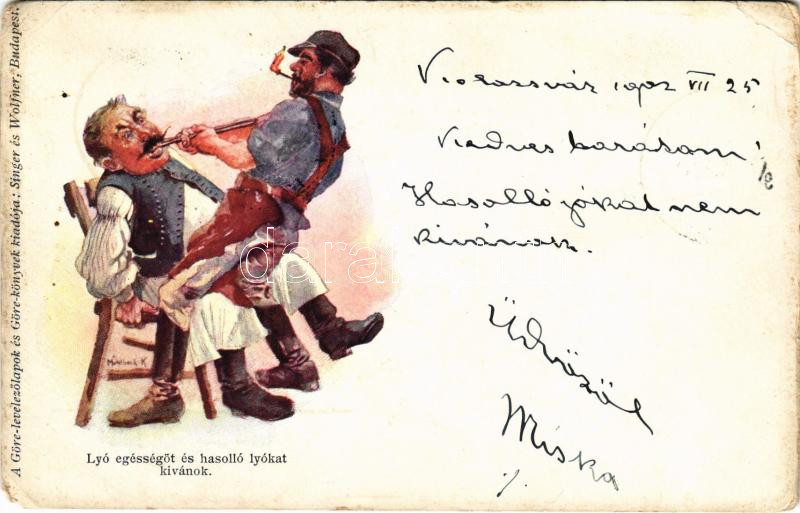 A Göre-levelezőlapok és Göre-könyvek kiadója: Singer és Wolfner, Budapest.
Mühlbeck K
Lyó egésségöt és hasolló lyókat
kivánok.
1902 VII 25
Kedves barátom!
Hasolló jókat nem
kivánok.
Üdvözöl
Miska
darabanth